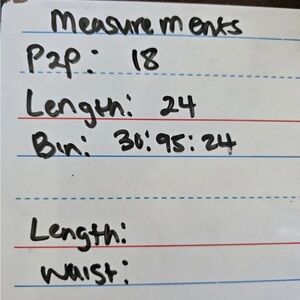 Measurements
P2P: 18
Length: 24
Bin: 30:95:24
Length:
Waist: